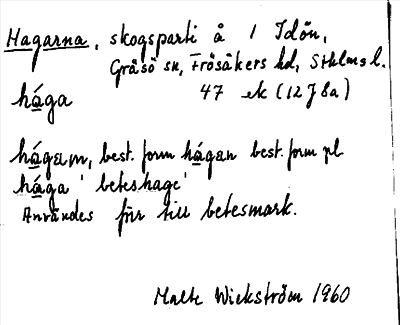 Hagarna, skogsparti å 1 Idön,
Gräsö sn, Frösåkers hd, Sthlms l.
47 ek (12J 8a)
hága
hágɛm, best. form hágan best. form pl
hága 'beteshage'
Användes förr till betesmark.
Malte Wickström 1960